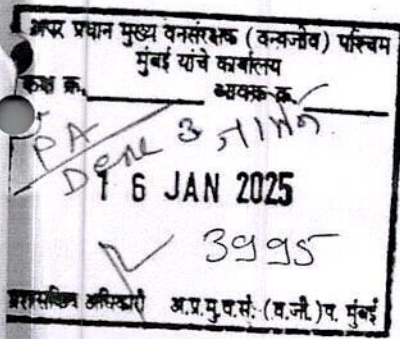 अपर प्रधान मुख्य वनसंरक्षक (वन्यजीव) पश्चिम
मुंबई यांचे कार्यालय
कक्ष क्र. आवक क्र.
PA
Desk 3
16 JAN 2025
3995
प्रशासकिय अधिकारी अ.प्र.मु.व.सं. (व.जी.) प. मुंबई